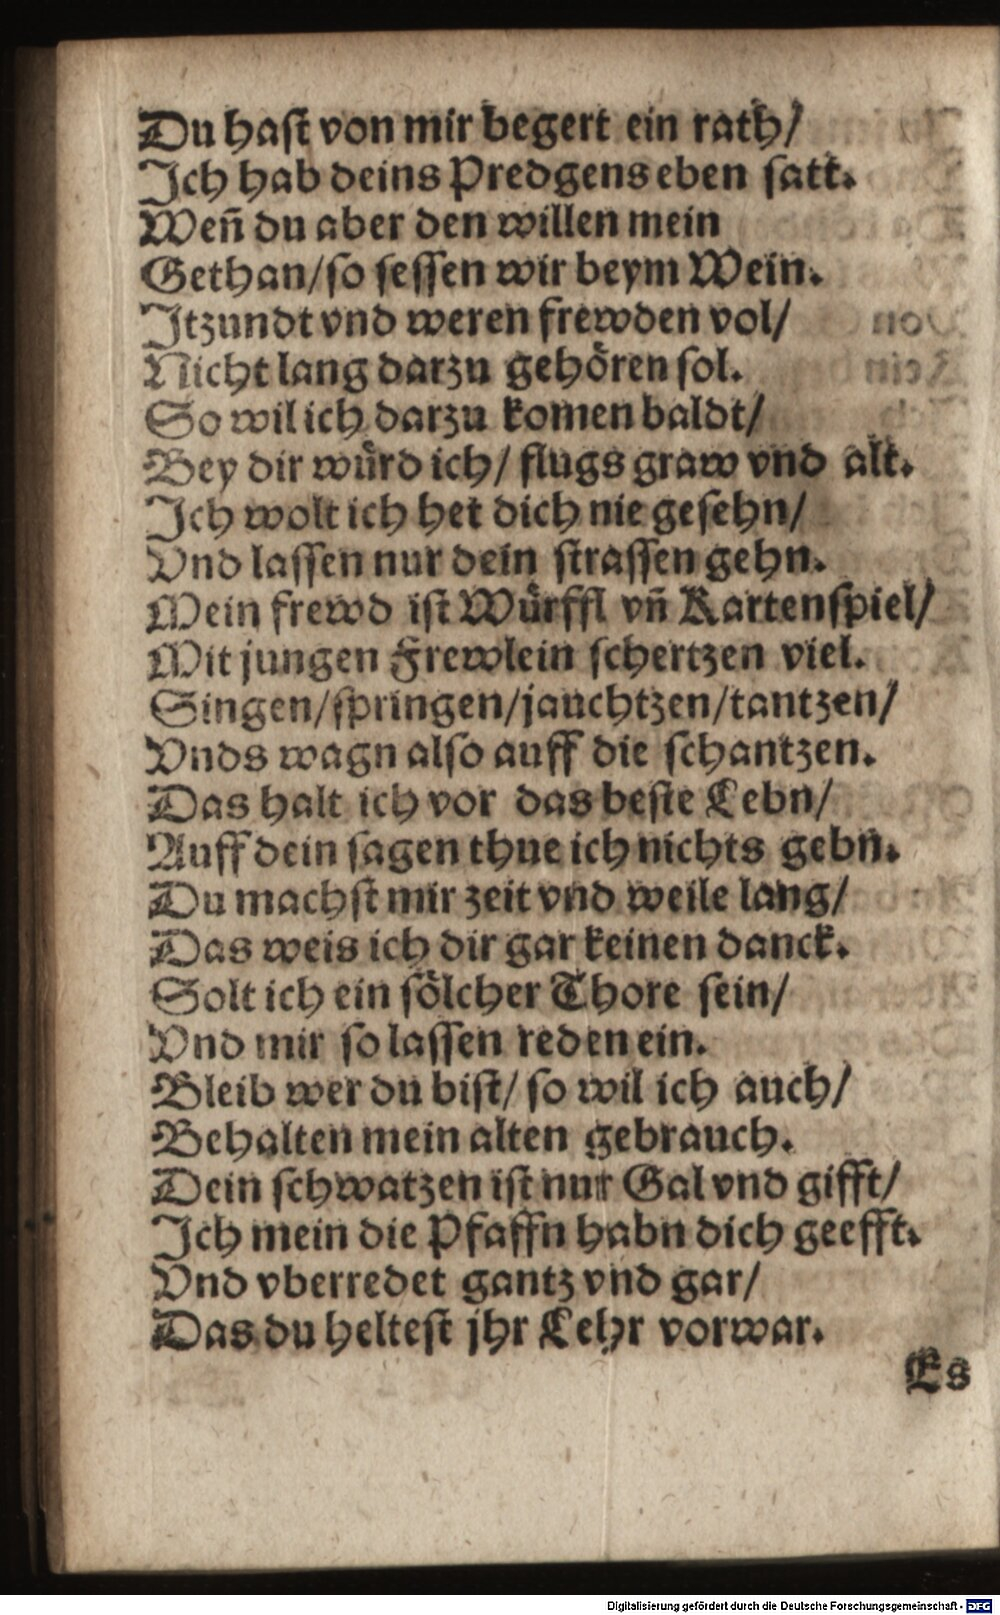 Du hast von mir begert ein rath/
Ich hab deins Predgens eben satt.
Weñ du aber den willen mein
Gethan/so sessen wir beym Wein.
Itzundt vnd weren frewden vol/
Nicht lang darzu gehören sol.
So wil ich darzu komen baldt/
Bey dir würd ich/ flugs graw vnd alt.
Ich wolt ich het dich nie gesehn/
Vnd lassen nur dein strassen gehn.
Mein frewd ist Würffl vñ Kartenspiel/
Mit jungen Frewlein schertzen viel.
Singen/springen/jauchtzen/tantzen/
Vnds wagn also auff die schantzen.
Das halt ich vor das beste Lebn/
Auff dein sagen thue ich nichts gebn.
Du machst mir zeit vnd weile lang/
Das weis ich dir gar keinen danck.
Solt ich ein sölcher Thore sein/
Vnd mir so lassen reden ein.
Bleib wer du bist/ so wil ich auch/
Behalten mein alten gebrauch.
Dein schwatzen ist nur Gal vnd gifft/
Ich mein die Pfaffn habn dich geefft.
Vnd vberredet gantz vnd gar/
Das du heltest jhr Lehr vorwar.
Es
Digitalisierung gefördert durch die Deutsche Forschungsgemeinschaft - DFG